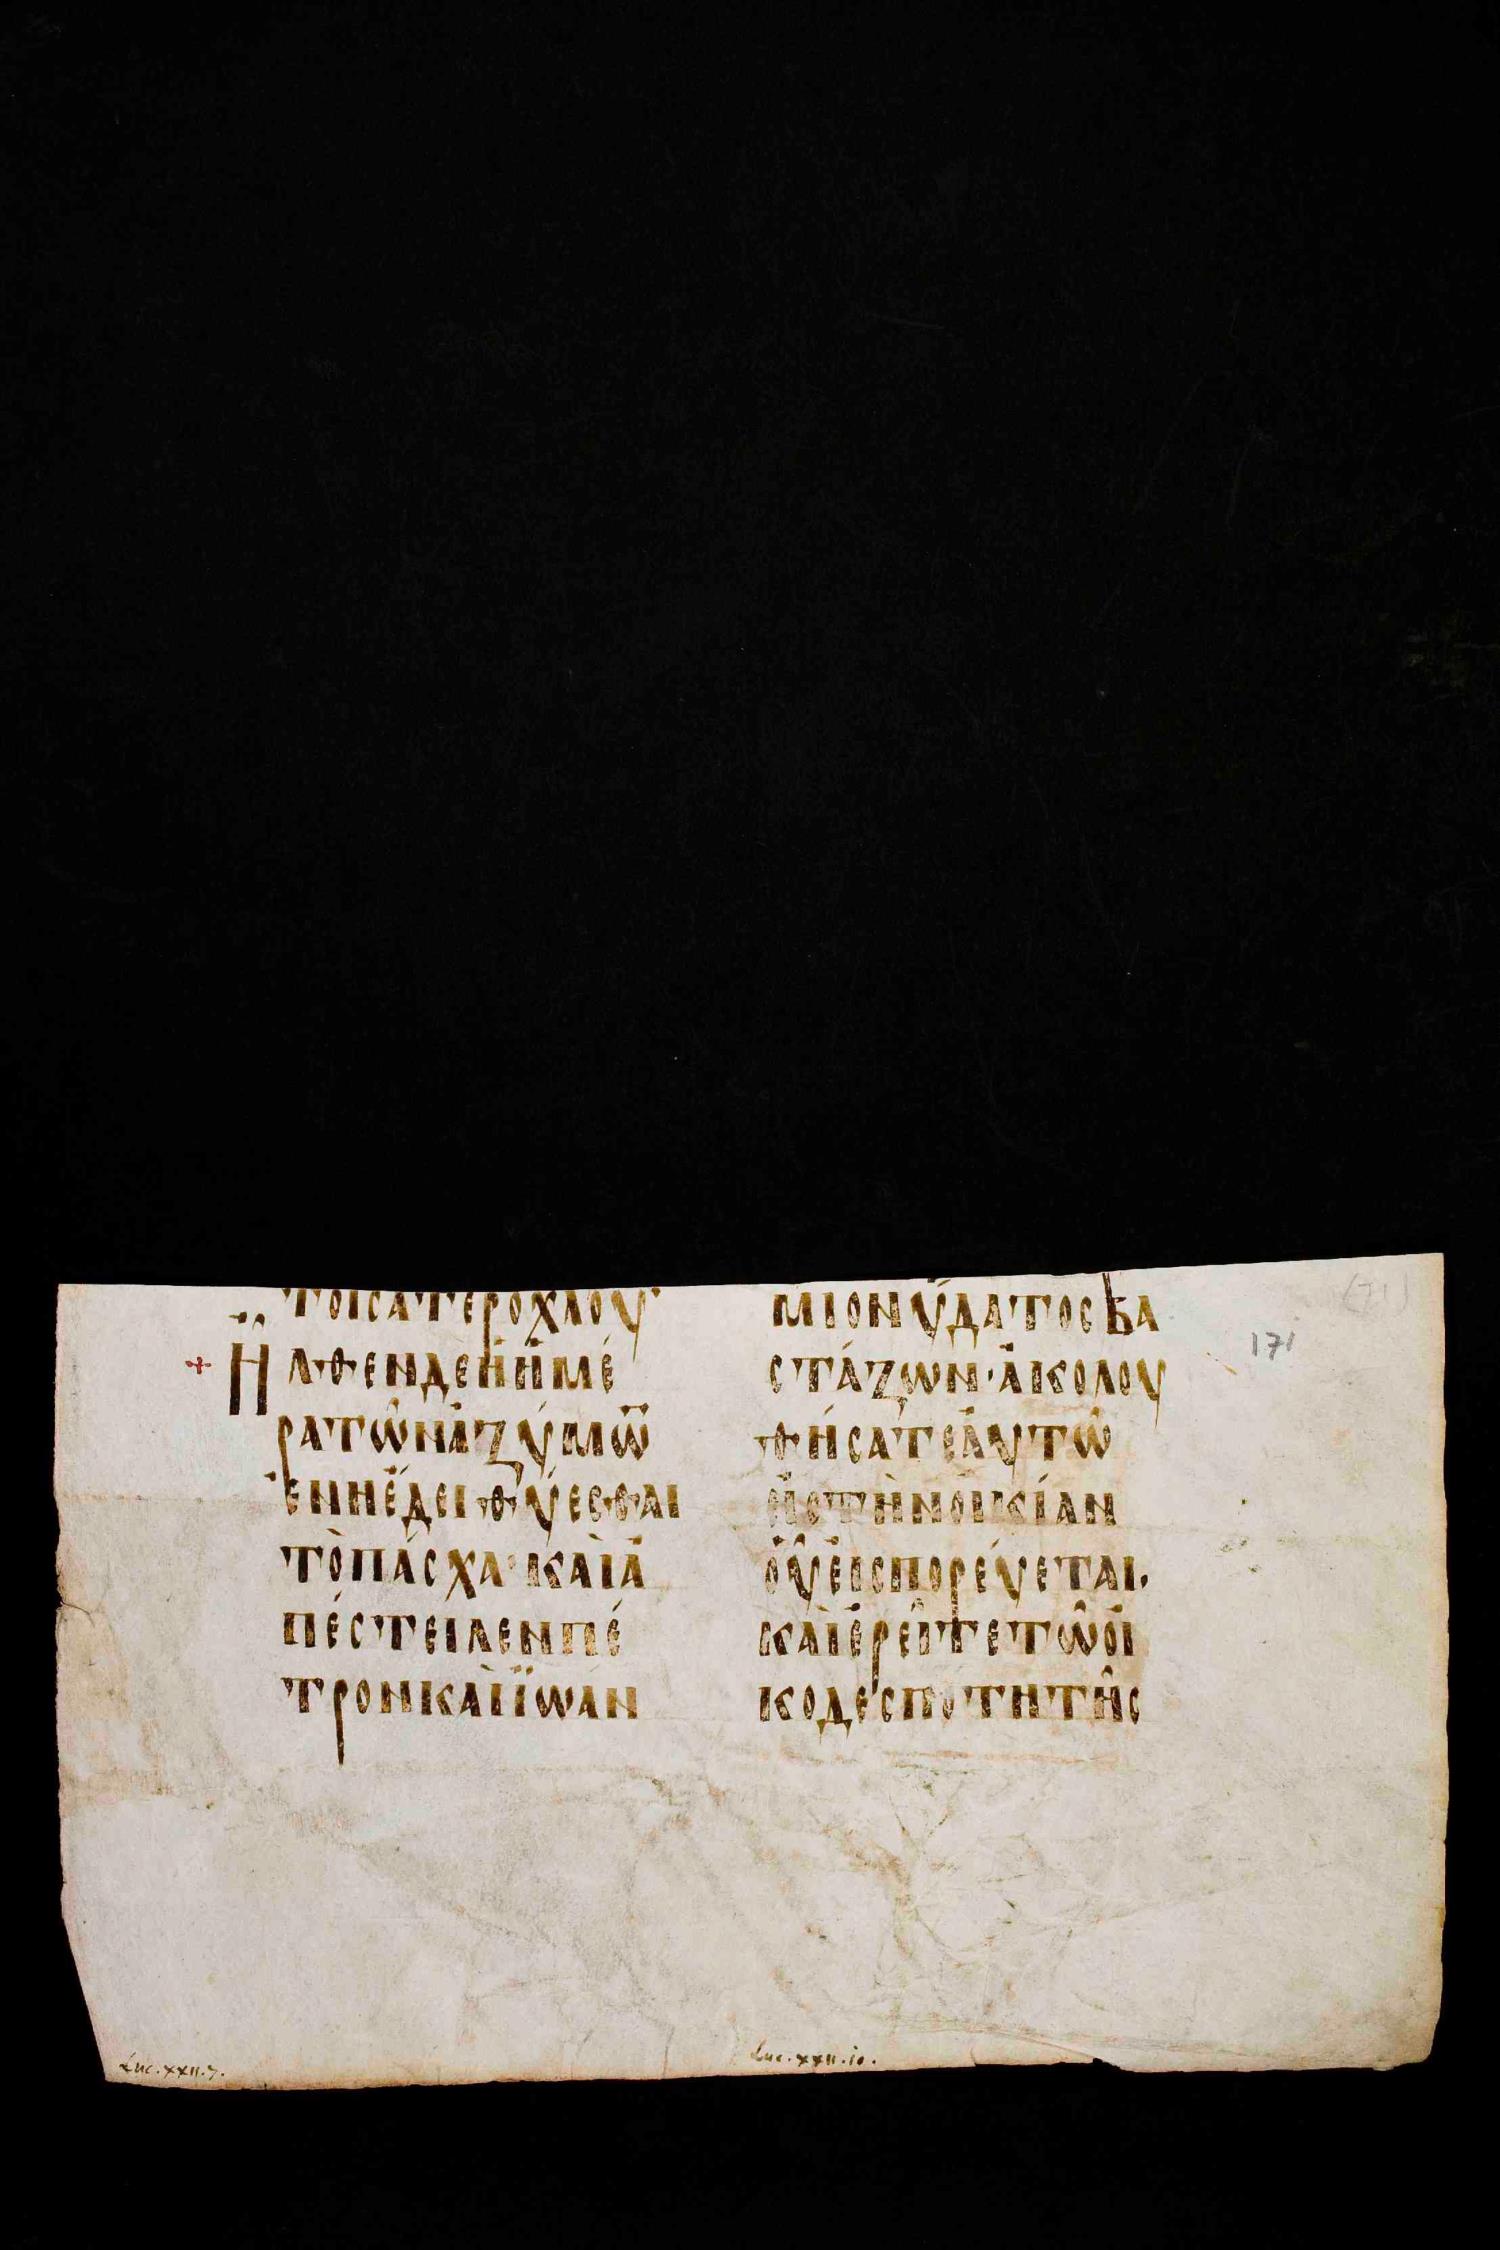 ΤΟΙΣΑΤΕΡΟΧΛΟΥ
ἮΛΘΕΝΔΕἩἩΜΈ
ΡΑΤΩ͂ΝἈΖΎΜΩ̅
ἘΝΗἜΔΕΙΘΎΕΣΘΑΙ
ΤῸΠΆΣΧΑ·ΚΑῚἈ
ΠΈΣΤΕΙΛΕΝΠΈ
ΤΡΟΝΚΑῚΪΩΆΝ
ΜΙΟΝὝΔΑΤΟΣΒΑ
ΣΤΆΖΩΝ·ἈΚΟΛΟΥ
ΘΉΣΑΤΕἈΥΤΩ͂
ἘΙΣΤῊΝΟἸΚΊΑΝ
ὉΥ͂ἘΙΣΠΟΡΕΎΕΤΑΙ·
ΚΑῚἘΡΕΙ͂ΤΕΤΩ͂ΟἸ
ΚΟΔΕΣΠΌΤΗΤΗ͂Σ
171
(71)
Luc. XXII. 7.
Luc. XXII. 10.